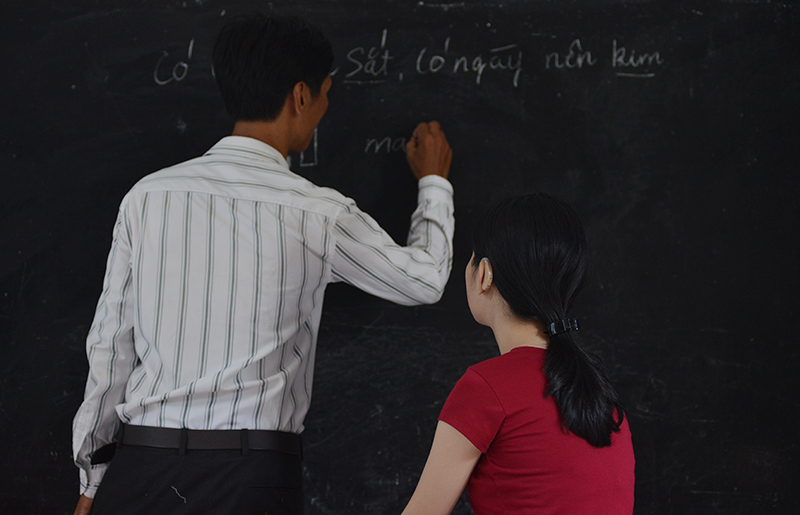 Có Sắt, có ngày nên kim
ma